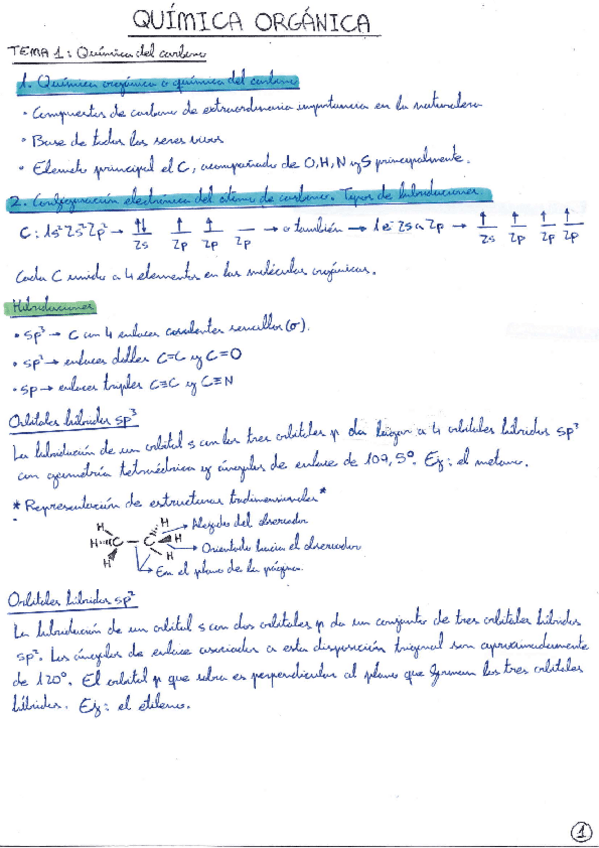 QUÍMICA ORGÁNICA
TEMA 1: Química del carbono
1. Química orgánica o química del carbono
• Compuestos de carbono de extraordinaria importancia en la naturaleza
• Base de todos los seres vivos
• Elemento principal el C, acompañado de O, H, N y S principalmente.
2. Configuración electrónica del átomo de carbono. Tipos de hibridaciones.
C: 1s² 2s² 2p² → ↑↓ ↑ ↑ — → o también → 1e⁻ 2s a 2p → ↑ ↑ ↑ ↑
2s 2p 2p 2p 2s 2p 2p 2p
Cada C unido a 4 elementos en las moléculas orgánicas.
Hibridaciones
• sp³ → C con 4 enlaces covalentes sencillos (σ).
• sp² → enlaces dobles C=C y C=O
• sp → enlaces triples C≡C y C≡N
Orbitales híbridos sp³
La hibridación de un orbital s con los tres orbitales p da lugar a 4 orbitales híbridos sp³
con geometría tetraédrica y ángulos de enlace de 109,5º. Ej: el metano.
*Representación de estructuras tridimensionales*
H H → Alejado del observador
H C — C H → Orientado hacia el observador
H H → En el plano de la página.
Orbitales híbridos sp²
La hibridación de un orbital s con dos orbitales p da un conjunto de tres orbitales híbridos
sp². Los ángulos de enlace asociados a esta disposición trigonal son aproximadamente
de 120º. El orbital p que sobra es perpendicular al plano que forman los tres orbitales
híbridos. Ej: el etileno.
1